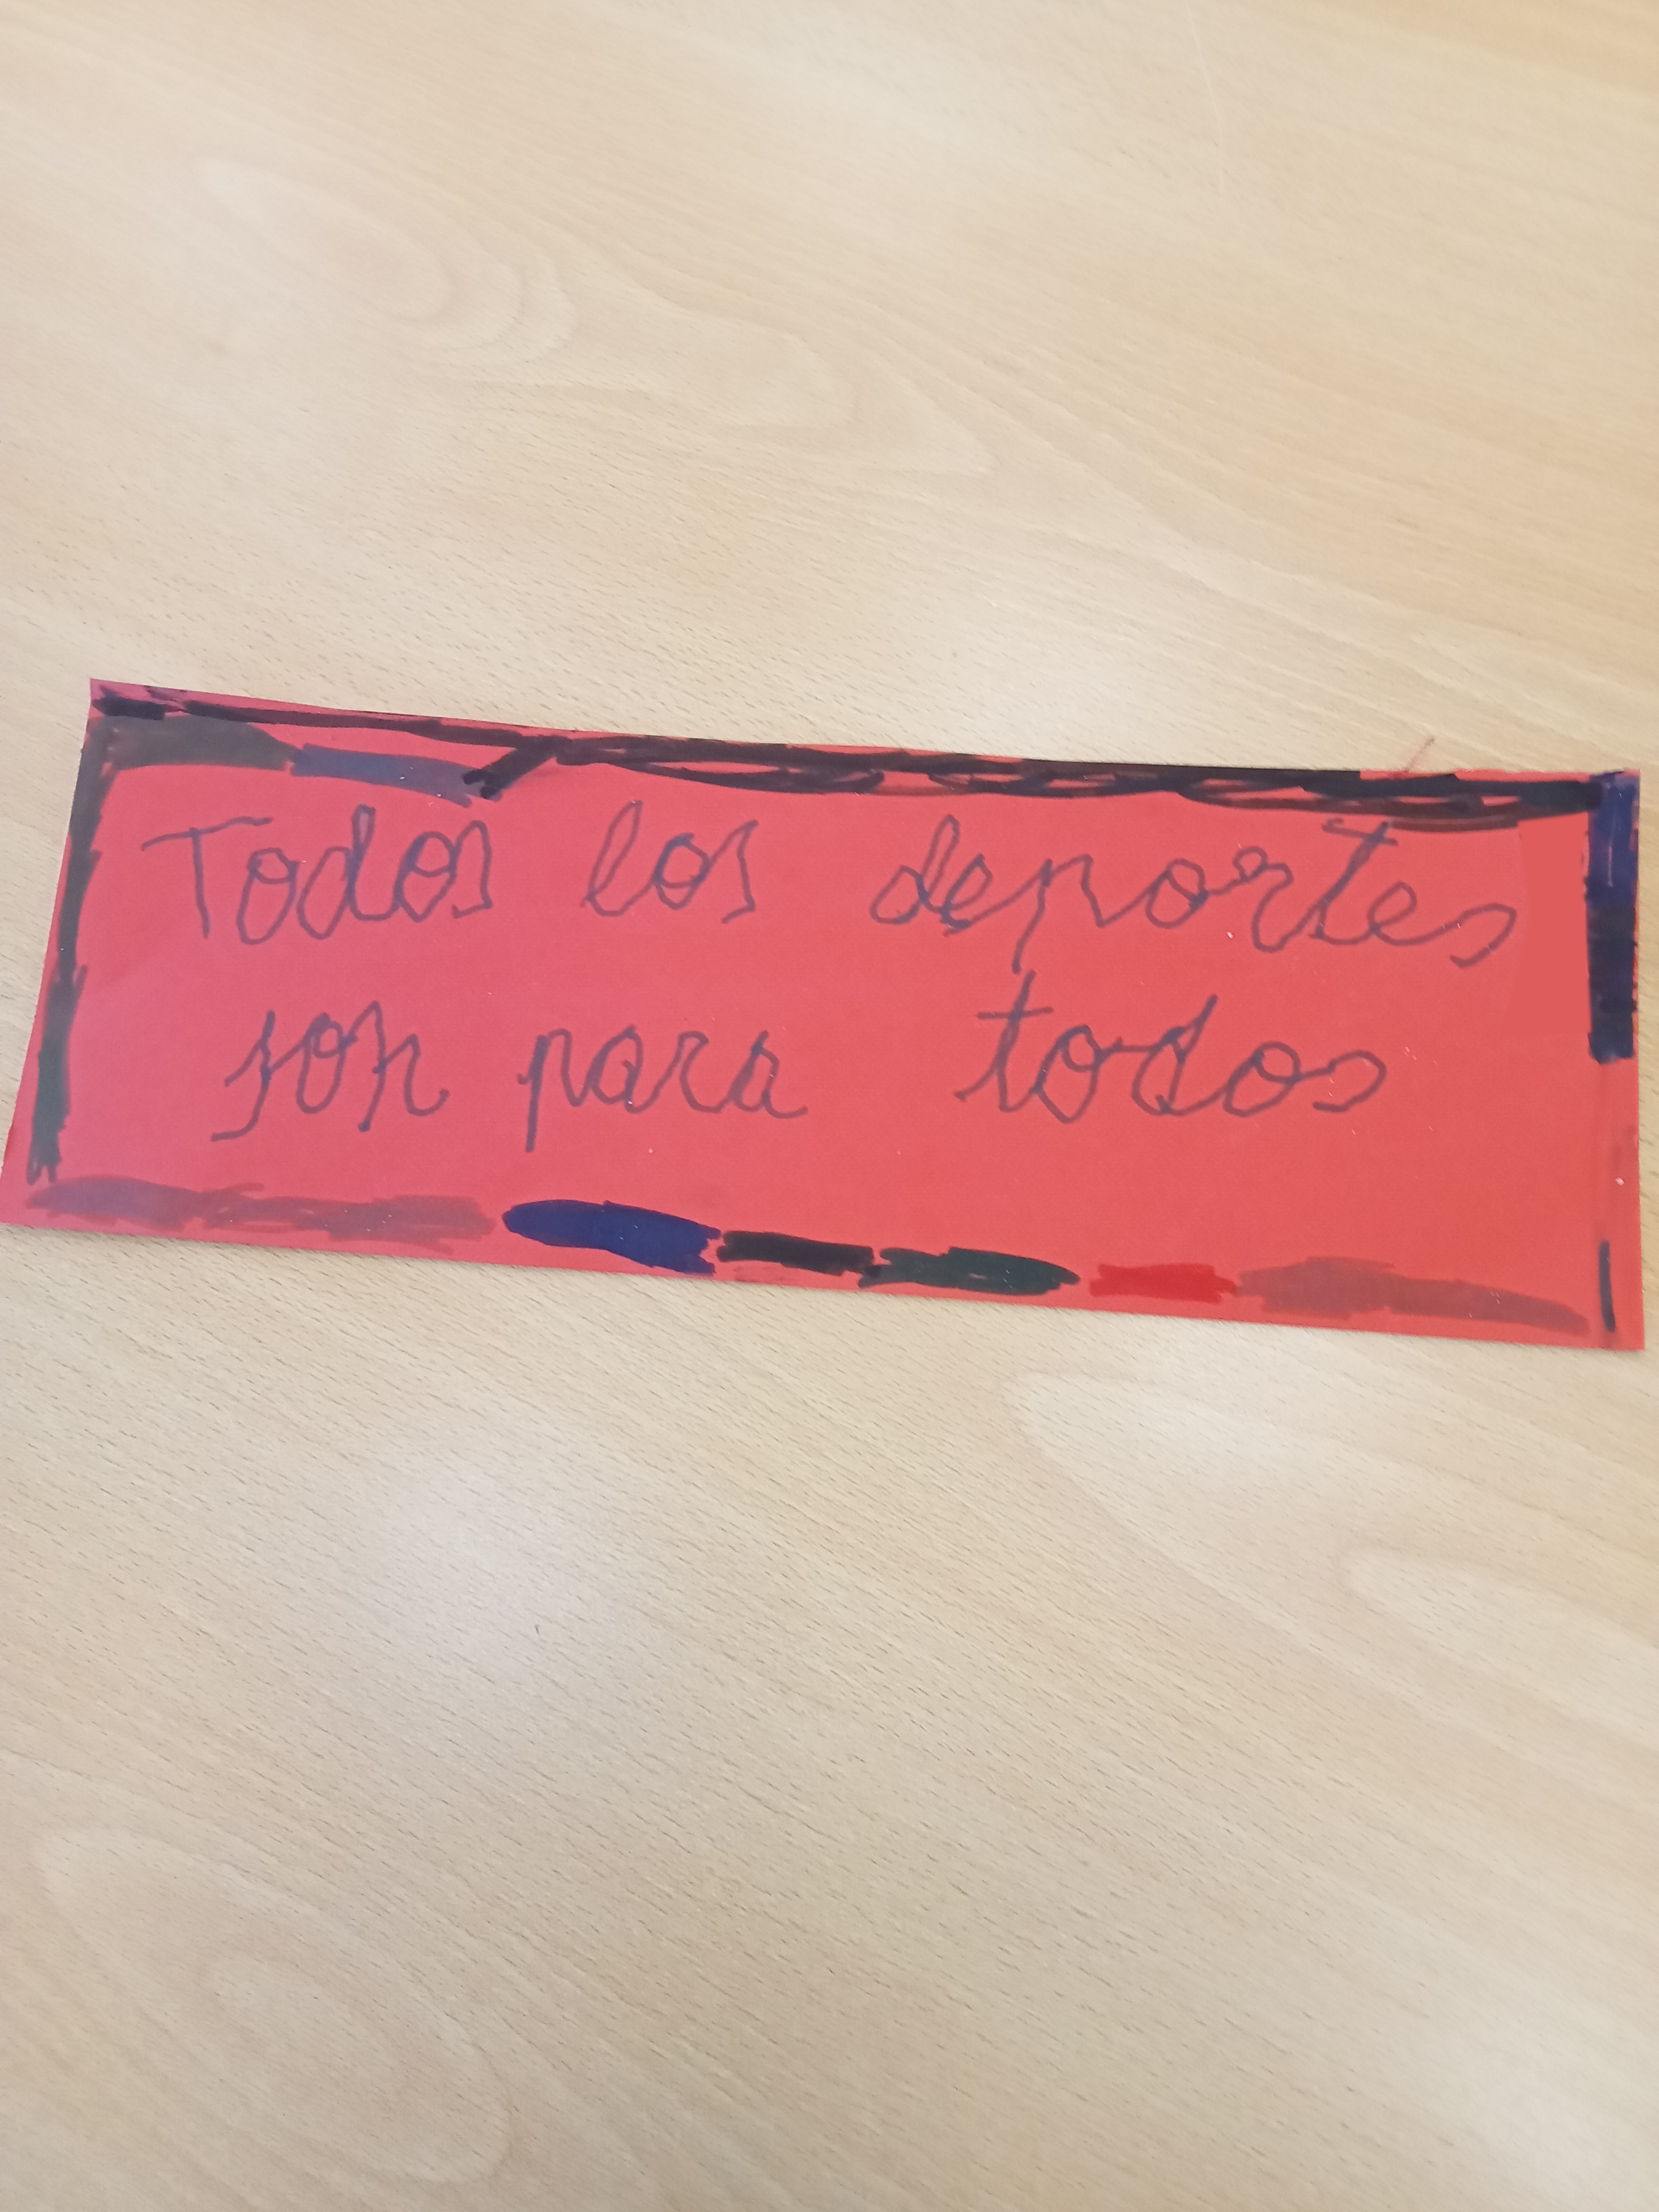 Todos los deportes
son para todos